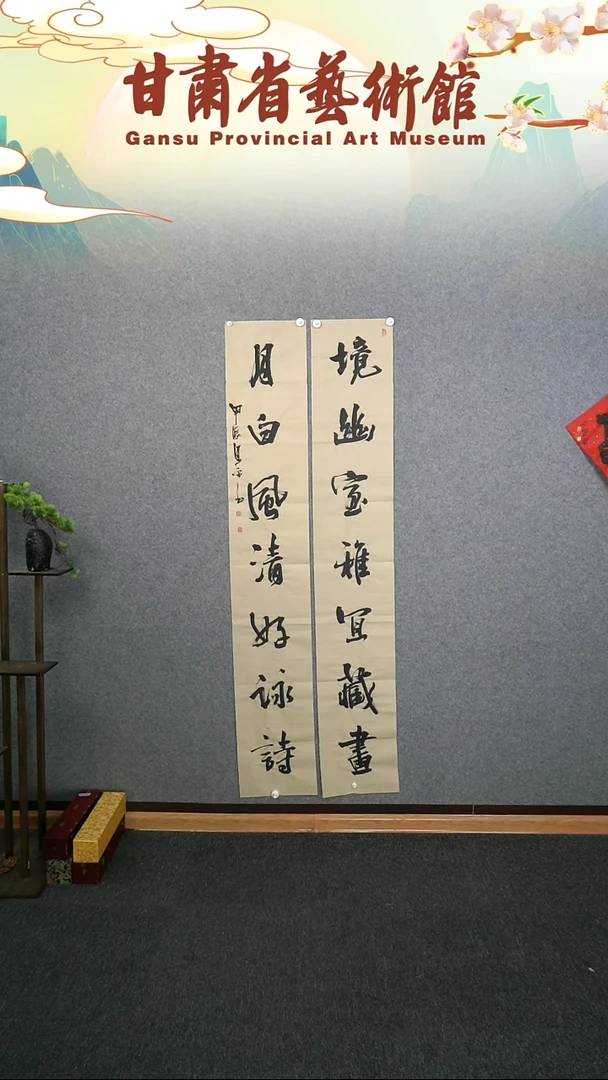 甘肅省藝術館
Gansu Provincial Art Museum
境幽室雅宜藏畫
月白風清好詠詩
甲辰